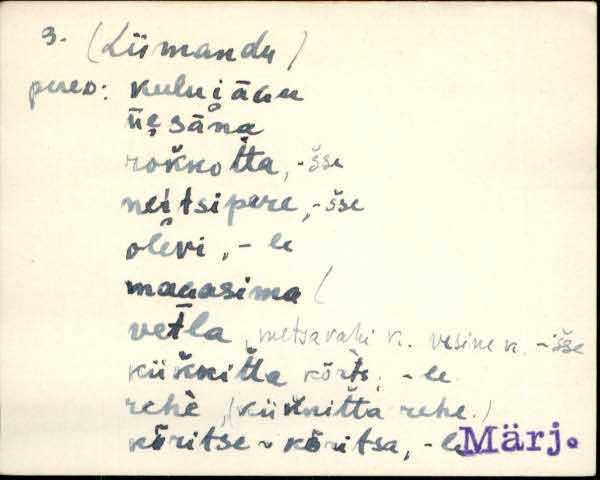 3. (Liimandu)
pered: kulniāau
üe̮sāna
rokkotta, -šse
neitsipere, -šse
olevi, - le
maaasima (
vetla, metsavahi k. vesine k. -išse
küknitta kõrts, - le
rehè, (küknitta rehe.)
kõritse ~ kõritsa, - le Märj.